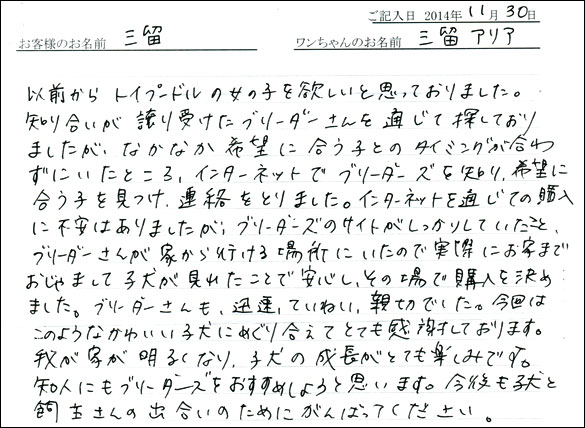 ご記入日 2014年 11月 30日
お客様のお名前 三留 ワンちゃんのお名前 三留 アリア
以前から トイプードルの女の子を欲しいと思っておりました。
知り合いが 譲り受けたブリーダーさんを 通じて 探しており
ましたが、なかなか 希望に 合う子との タイミングが合わ
ずにいたところ、インターネットで ブリーダーズを知り、希望に
合う子を見つけ、連絡をとりました。インターネットを通じての購入
に不安はありましたが、ブリーダーズのサイトがしっかりしていたこと、
ブリーダーさんが 家から行ける 場所にいたので実際にお家まで
おじゃまして 子犬が 見れたことで安心し、その場で購入を決め
ました。ブリーダーさんも、迅速、ていねい、親切でした。今回は
このようなかわいい子犬にめぐり合えてとても感謝しております。
我が家が 明るくなり、子犬の成長がとても楽しみです。
知人にもブリーダーズをおすすめしようと思います。今後も子犬と
飼主さんの出合いのためにがんばってください。